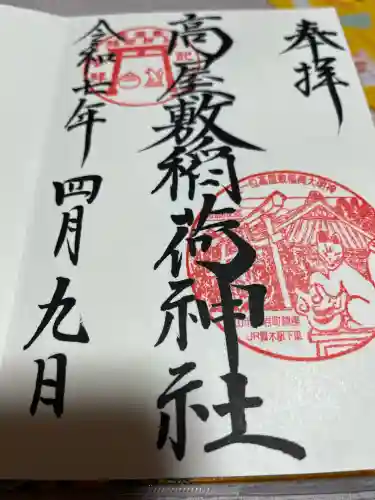 奉拝
高屋敷稲荷神社
令和七年
四月九日